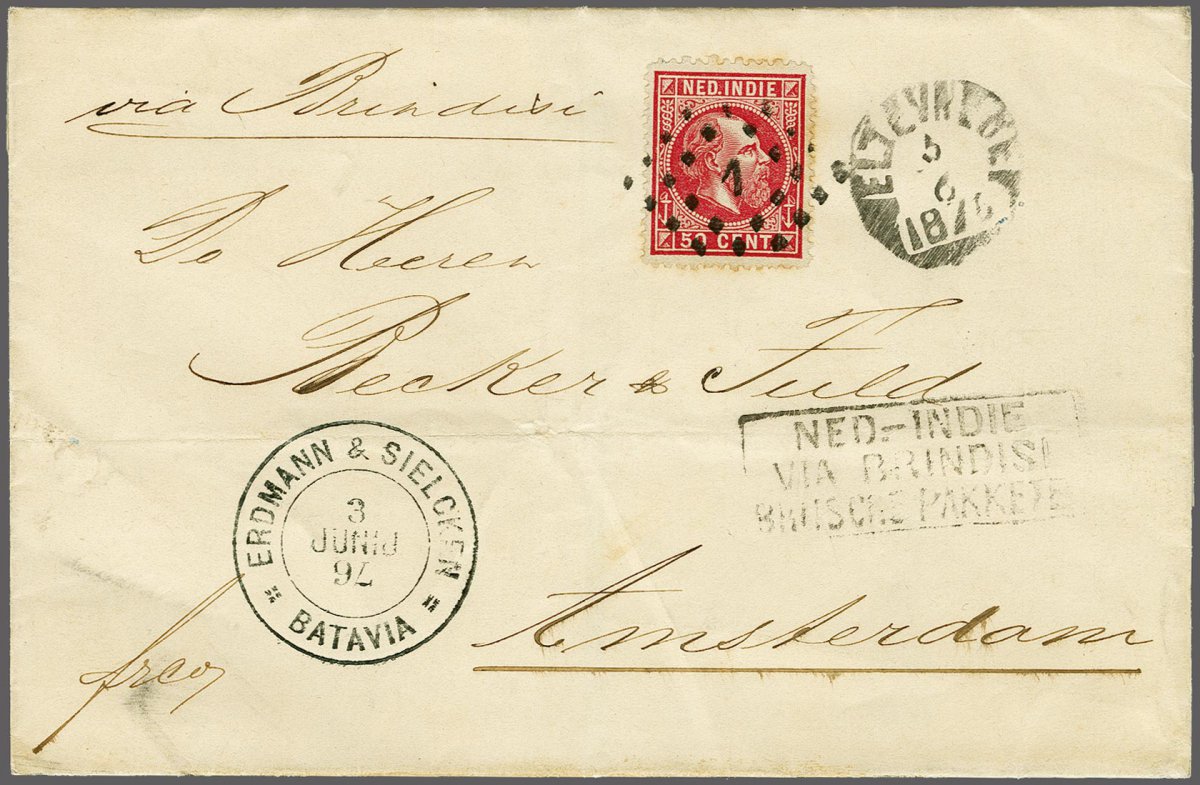 via Brindisi
NED. INDIE
1
50 CENT
ELTEVREDE
5
6
1876
De Heeren
Becker & Fuld
NED.-INDIE
VIA BRINDISI
BRITSCHE PAKKETB
ERDMANN & SIELCKEN
3
JUNIJ
BATAVIA
Amsterdam
frco